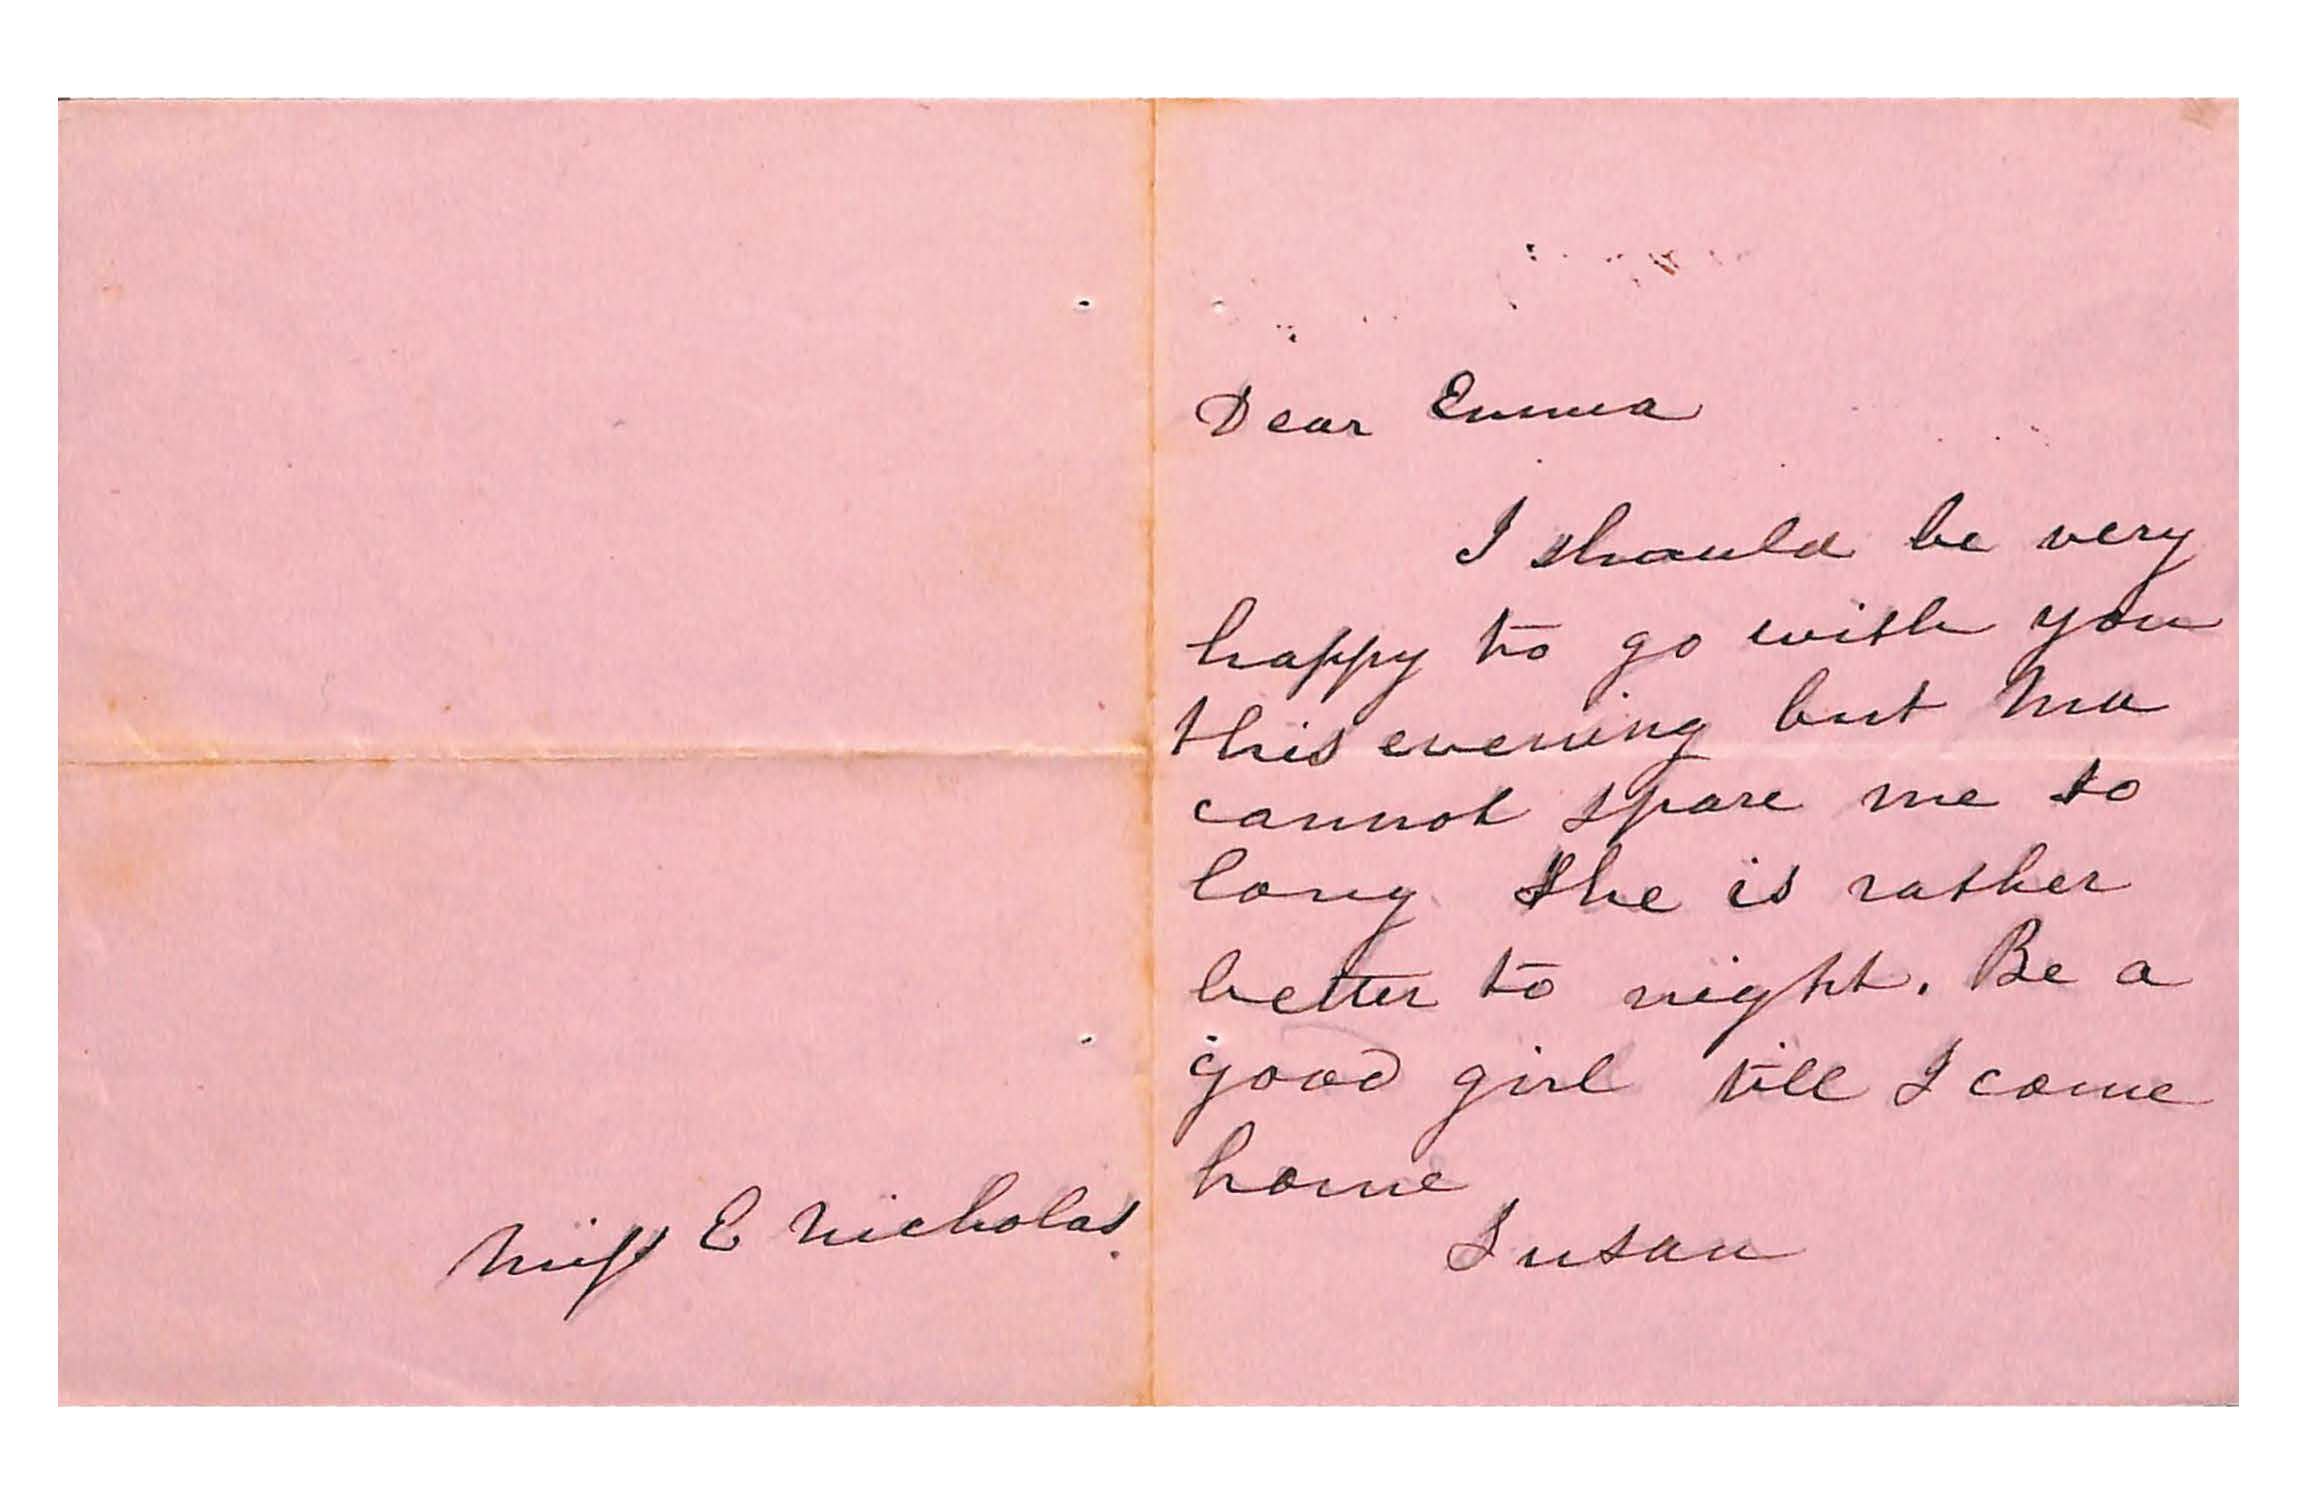 Dear Emma
I should be very
happy to go with you
this evening but Ma
cannot spare me so
long She is rather
better to night. Be a
good girl till I come
home
Susan
Miss E Nicholas.